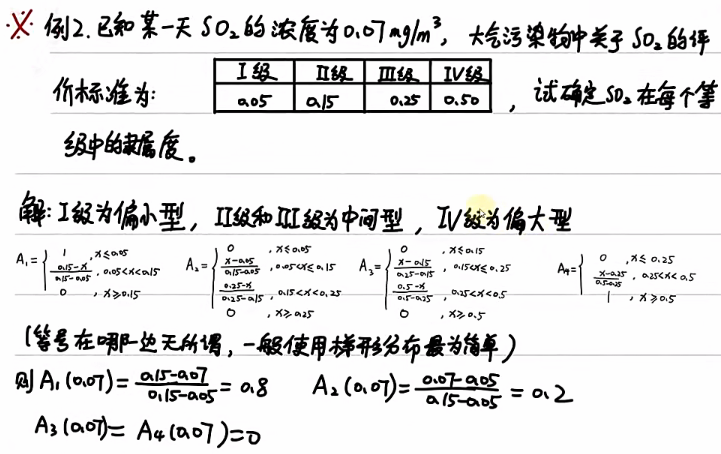 ※ 例2.已知某一天SO₂的浓度为0.07mg/m³, 大气污染物中关于SO₂的评
价标准为: , 试确定SO₂在每个等
I级 II级 III级 IV级
0.05 0.15 0.25 0.50
级中的隶属度。
解: I级为偏小型, II级和III级为中间型, IV级为偏大型
A₁={ 1 , x≤0.05
(0.15-x)/(0.15-0.05) , 0.05<x<0.15
0 , x≥0.15
A₂={ 0 , x≤0.05
(x-0.05)/(0.15-0.05) , 0.05<x≤0.15
(0.25-x)/(0.25-0.15) , 0.15<x<0.25
0 , x≥0.25
A₃={ 0 , x≤0.15
(x-0.15)/(0.25-0.15) , 0.15<x≤0.25
(0.5-x)/(0.5-0.25) , 0.25<x<0.5
0 , x≥0.5
A₄={ 0 , x≤0.25
(x-0.25)/(0.5-0.25) , 0.25<x<0.5
1 , x≥0.5
(等号在哪一边无所谓, 一般使用梯形分布最为简单)
则A₁(0.07)=(0.15-0.07)/(0.15-0.05)=0.8 A₂(0.07)=(0.07-0.05)/(0.15-0.05)=0.2
A₃(0.07)=A₄(0.07)=0